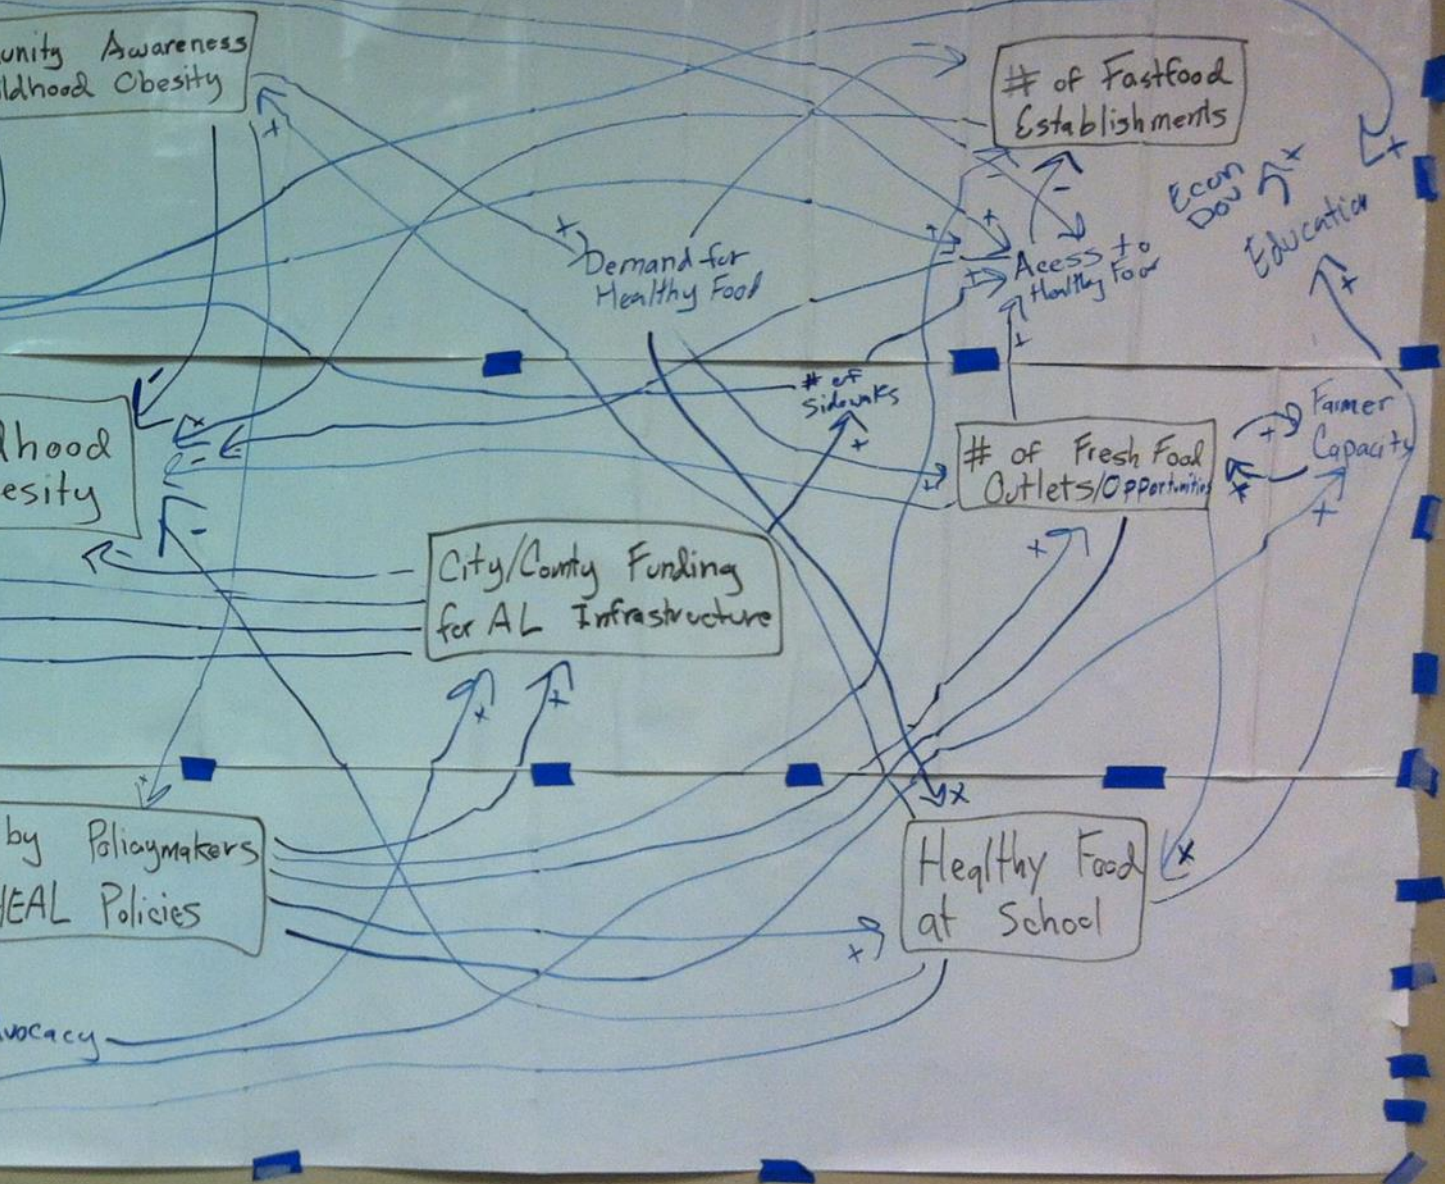 unity Awareness
ldhood Obesity
# of Fastfood
Establishments
Econ
Dov
Education
Demand for
Healthy Food
Acess to
Healthy Food
# of
Sidewaks
Farmer
Capacity
# of Fresh Food
Outlets/Opportunities
dhood
esity
City/County Funding
for AL Infrastructure
by Policymakers
HEAL Policies
Healthy Food
at School
vocacy